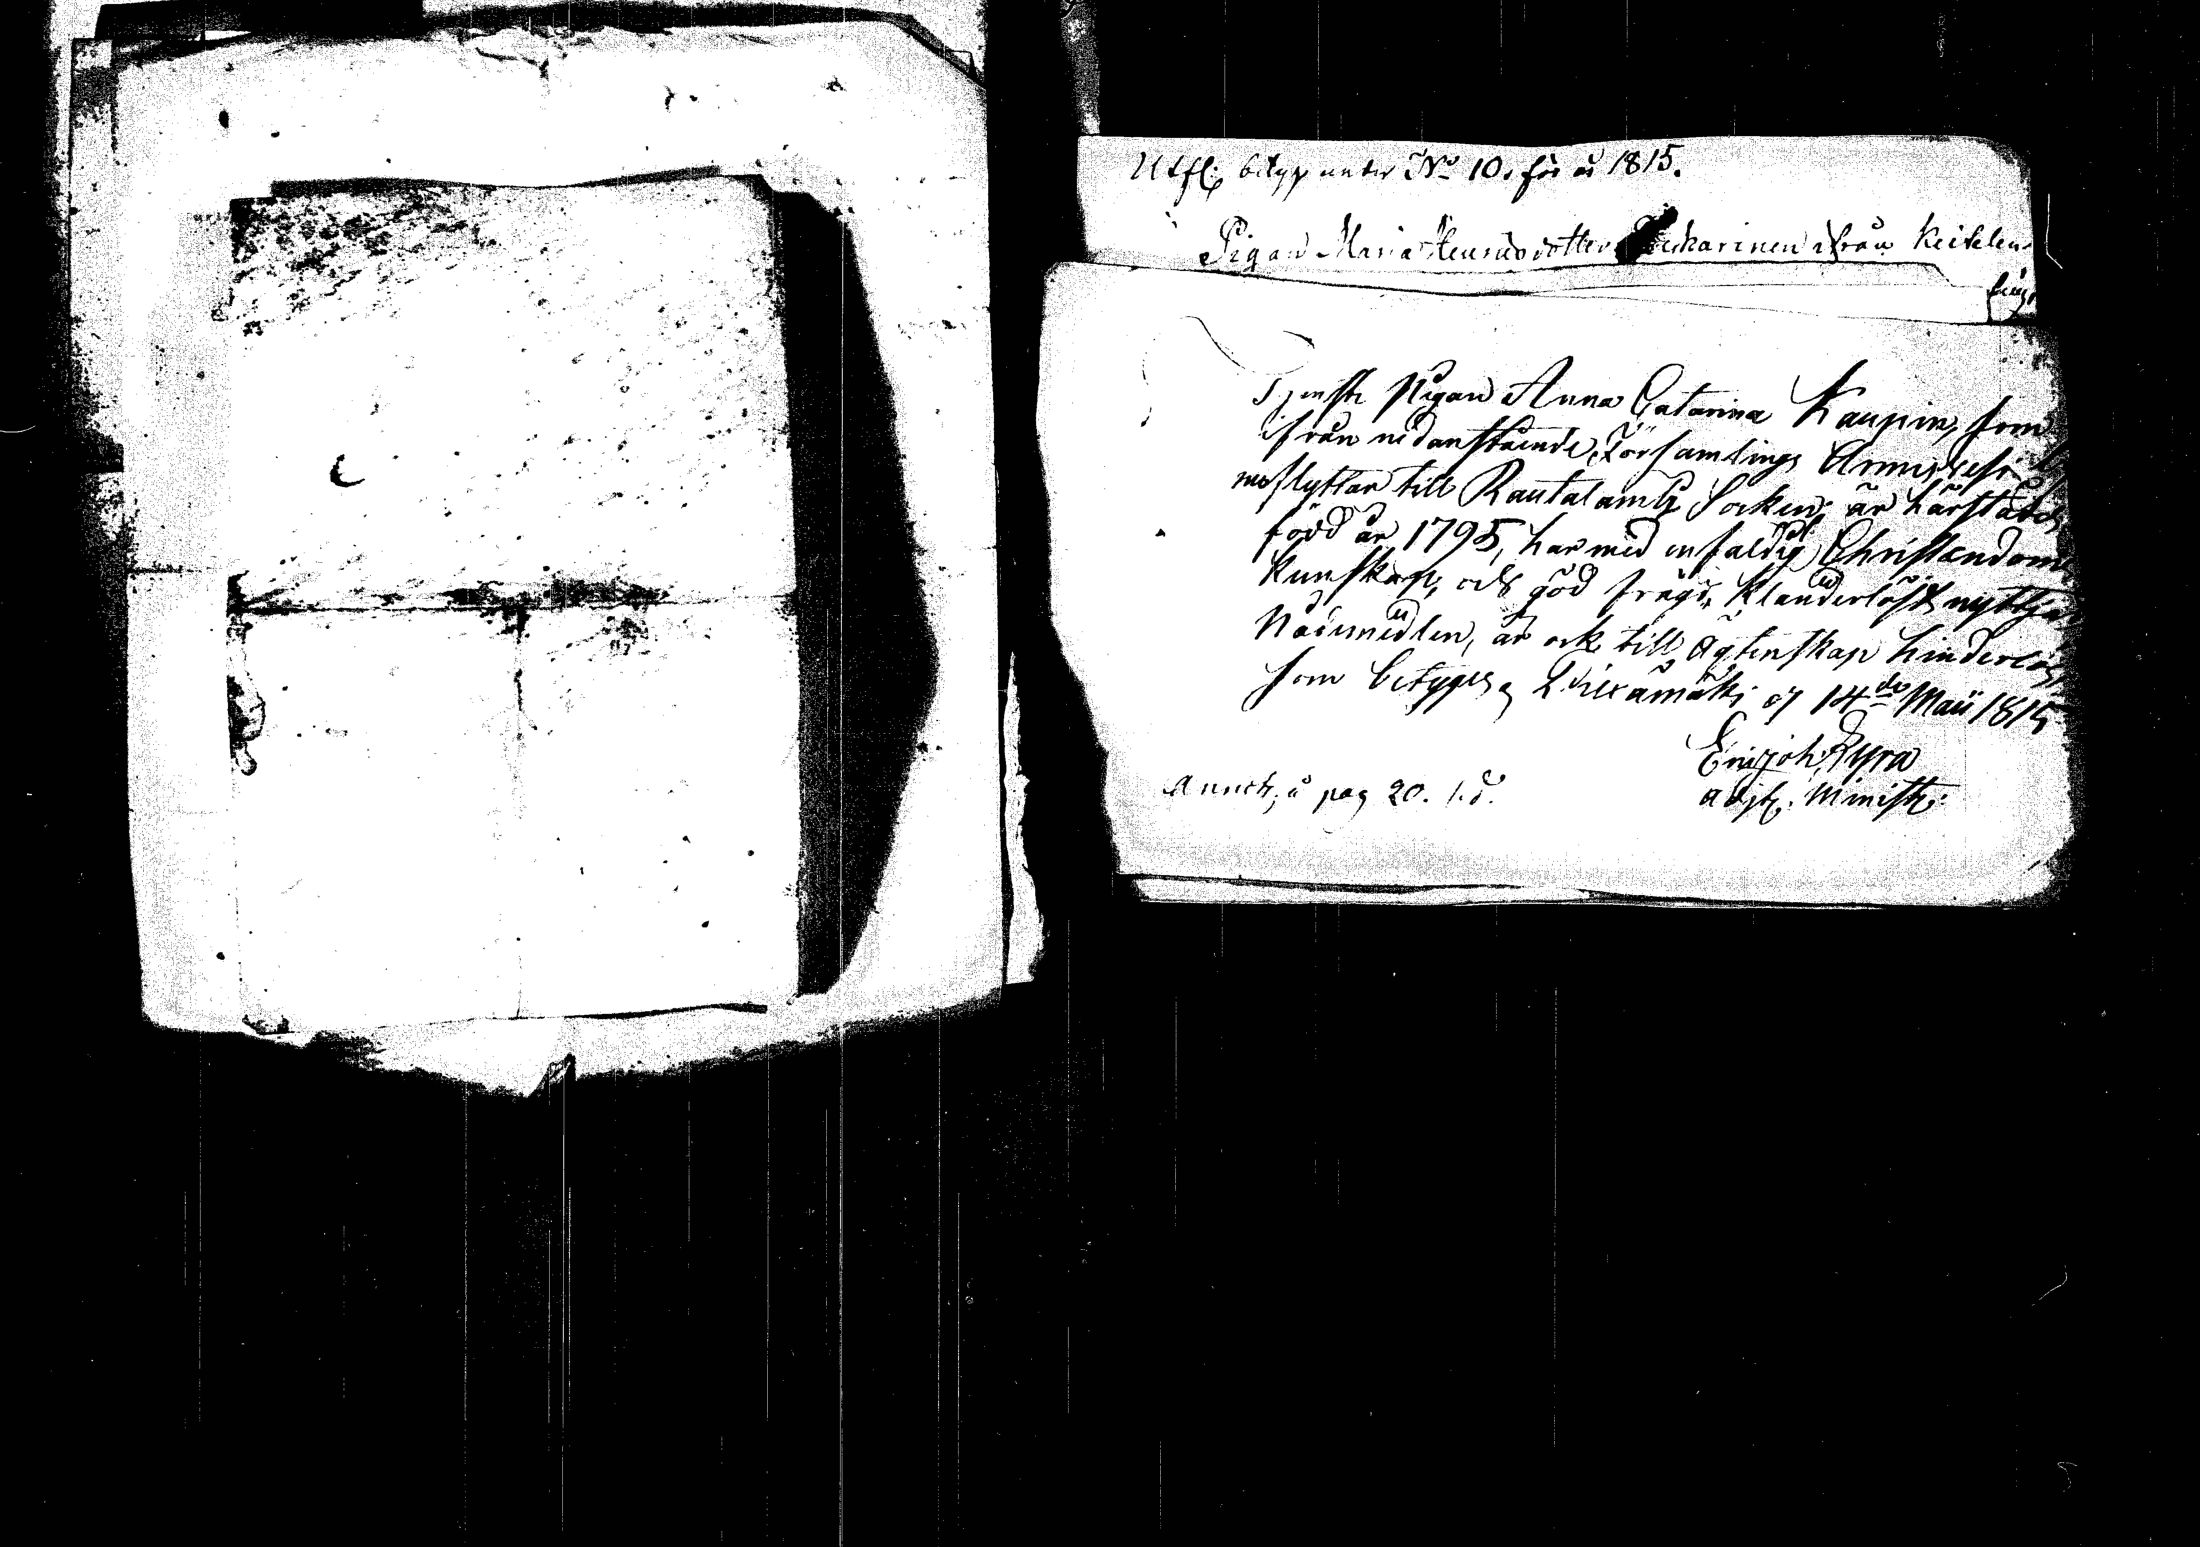 Utfl: betyg under No 10. för år 1815.
Pigan Maria Henricsdotter Puckarinen ifrån Keitelen-
Tjenste Pigan Anna Catarina Kaupin, som
ifrån nedanstående Församlings
nu flyttar till Rautalambi Socken, är härstädes
född år 1795, har med enfaldig Christendoms
kunskap, och god frägd, klanderlöst nyttja
Nådemedlen, är ock till ägtenskap hinderlös
som betygas, Pielamäki af 14de Maii 1815
Eric Joh: Kyra
adjt. Minist:
Annot: å pag 20.